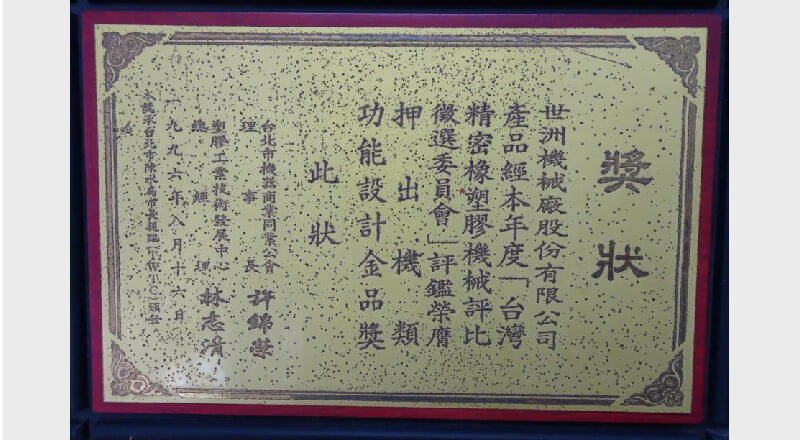 獎狀
世洲機械廠股份有限公司
產品經本年度「台灣
精密橡塑膠機械評比
徵選委員會」評鑑榮膺
押出機類
功能設計金品獎
此狀
台北市機器商業同業公會
理事長 許錦榮
塑膠工業技術發展中心
總經理 林志清
一九九六年八月十六日
本獎承台北市陳水扁市長親臨
頒發